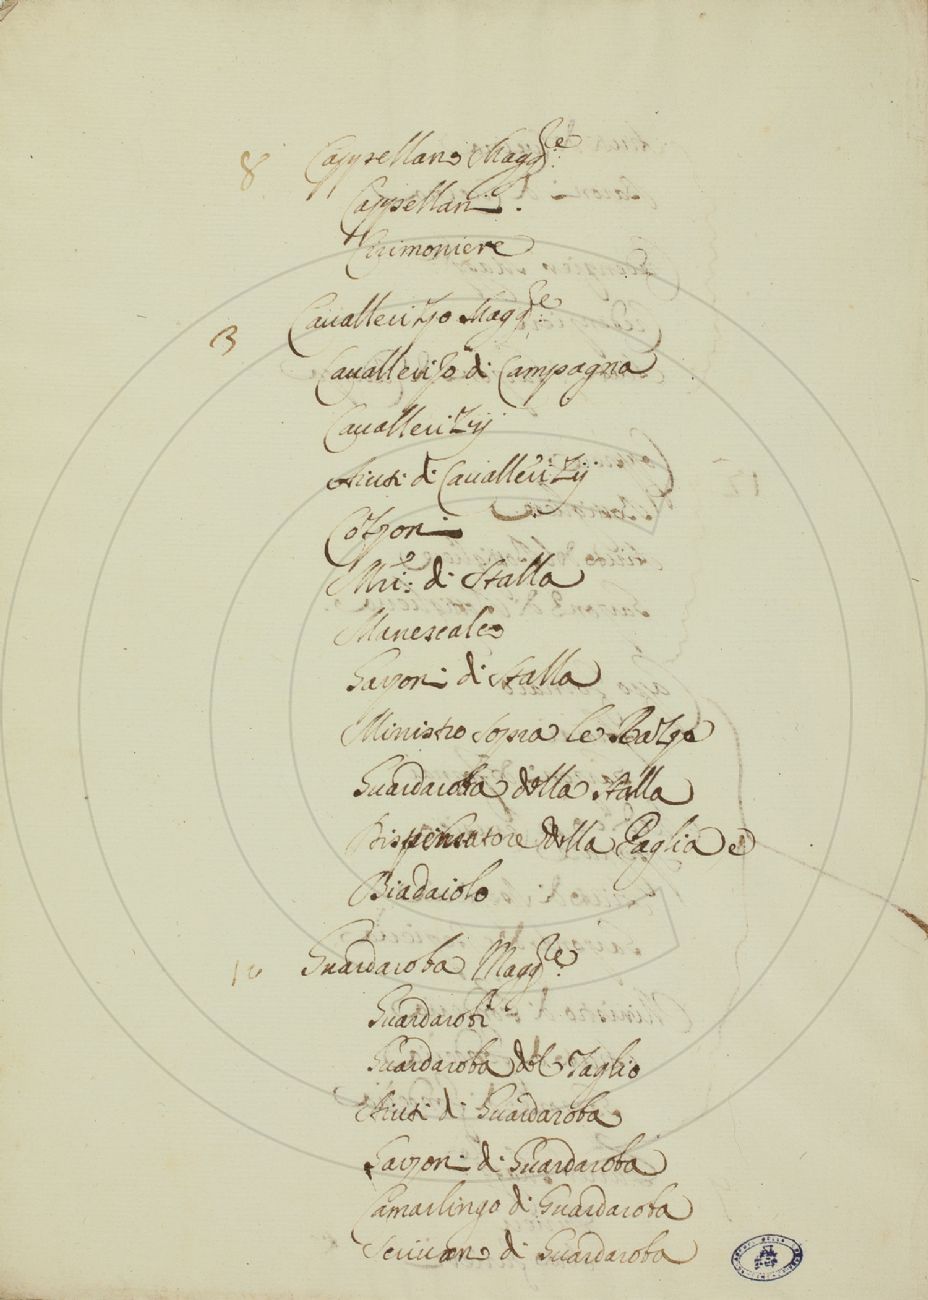 8 Cappellano Magg.re
Cappellani.
Cirimoniere
3 Cauallerizzo Magg.re
Cauallerizzo di Campagna
Cauallerizzij
Aiuti di Cauallerizzij
Cozzoni
Mri: di Stalla
Manescalco
Garzoni di Stalla
Ministro sopra le Razze
Guardaroba della Stalla
Dispensatore della Paglia e
Biadaiolo
10 Guardaroba Magg.re
Guardarobi
Guardaroba del Taglio
Aiuti di Guardaroba
Garzoni di Guardaroba
Camarlingo di Guardaroba
Scriuano di Guardaroba